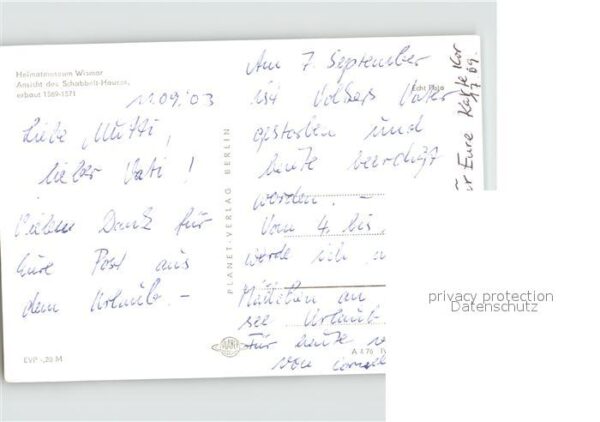 Heimatmuseum Wismar
Ansicht des Schabbelt-Hauses,
erbaut 1569-1571
11.09.03
Liebe Mutti,
lieber Vati!
Vielen Dank für
Eure Post aus
dem Urlaub.-
EVP -,20 M
PLANET-VERLAG BERLIN
PLANET
Echt Foto
Am 7. September
ist Volkers Vater
gestorben und
heute beerdigt
worden. -
Vom 4. bis
werde ich
Mädchen an
see Urlaub
Für heute
von
A 4 76
für Eure Karte
privacy protection
Datenschutz